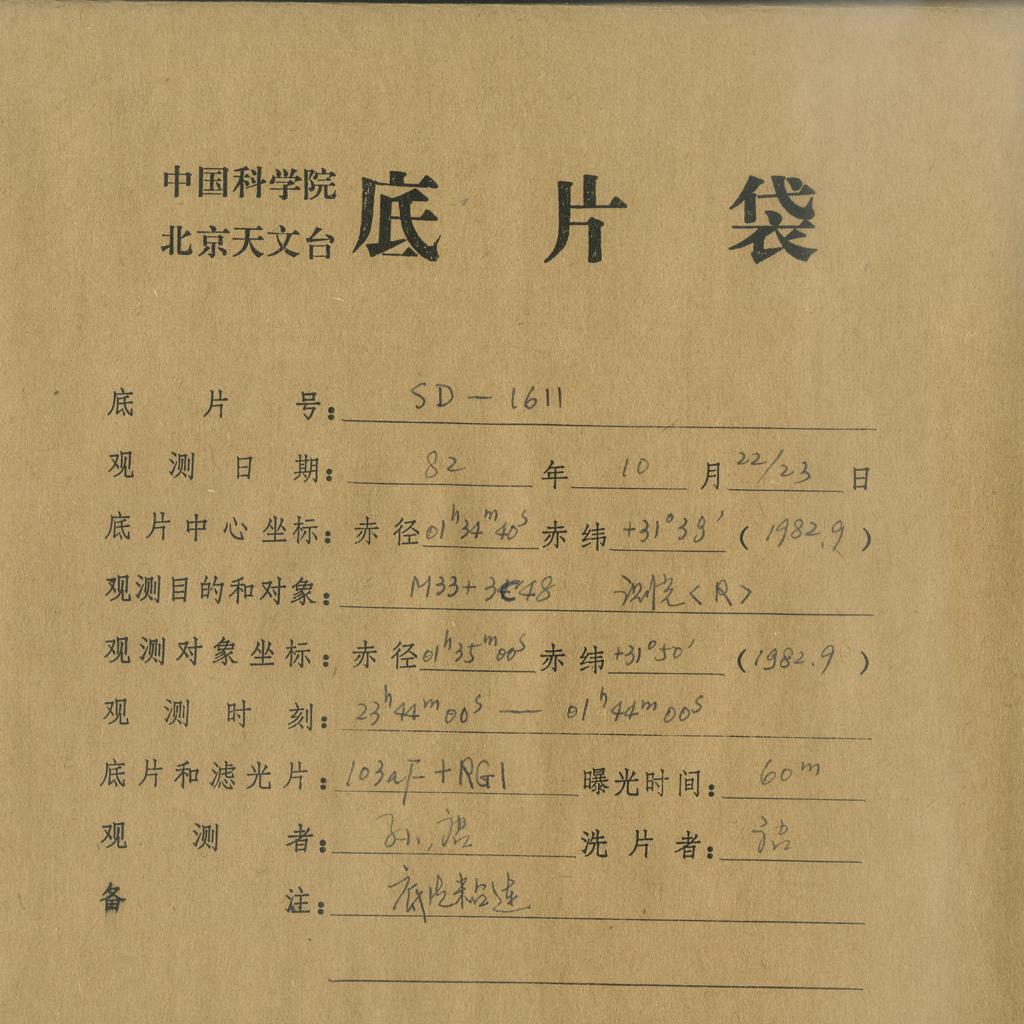 中国科学院
北京天文台
底片袋
底片号: SD-1611
观测日期: 82 年 10 月 22/23 日
底片中心坐标: 赤径 01h 34m 40s 赤纬 +31°39' (1982.9)
观测目的和对象: M33+3C48 <R>
观测对象坐标: 赤径 01h 35m 00s 赤纬 +31°50' (1982.9)
观测时刻: 23h 44m 00s — 01h 44m 00s
底片和滤光片: 103aF+RG1 曝光时间: 60m
观测者: 孙, 洗片者:
备注: 底片粘连